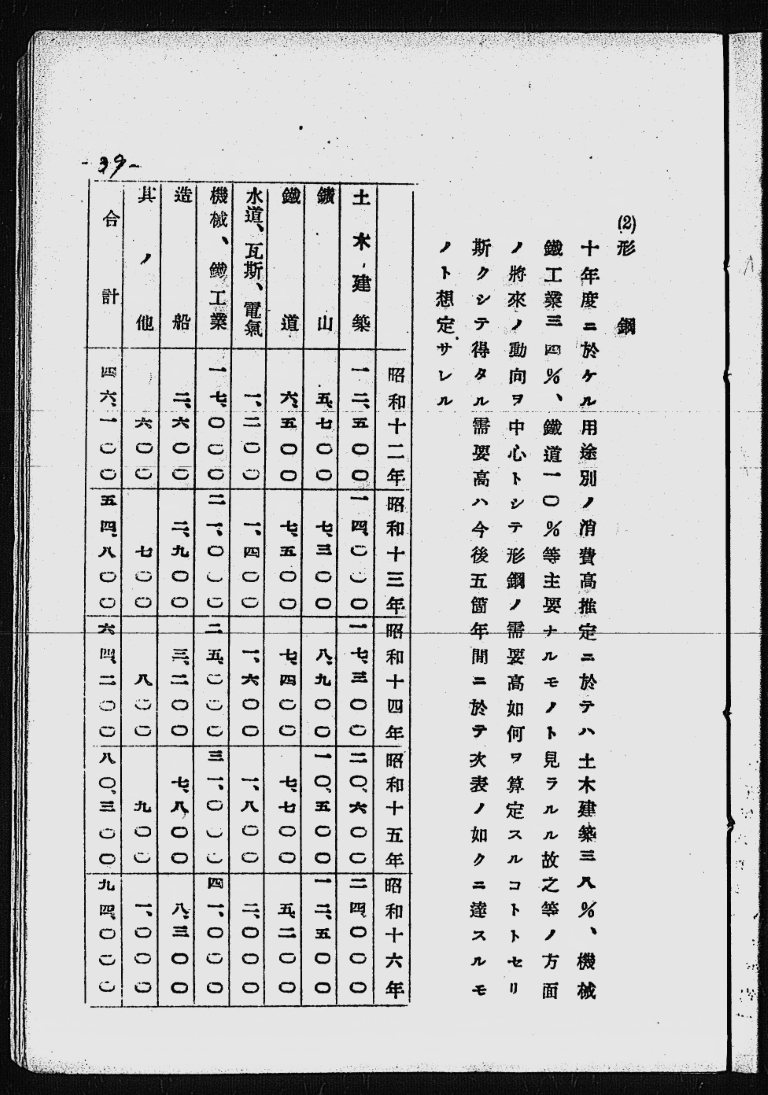 (2)形鋼
十年度ニ於ケル用途別ノ消費高推定ニ於テハ土木建築三八%、機械
鐵工業三四%、鐵道一〇%等主要ナルモノト見ラルル故之等ノ方面
ノ將來ノ動向ヲ中心トシテ形鋼ノ需要高如何ヲ算定スルコトトセリ
斯クシテ得タル需要高ハ今後五箇年間ニ於テ次表ノ如クニ達スルモ
ノト想定サレル
昭和十二年 昭和十三年 昭和十四年 昭和十五年 昭和十六年
土木建築 一二、五〇〇 一四、〇〇〇 一七、三〇〇 二〇、六〇〇 二四、〇〇〇
鑛山 五、七〇〇 七、三〇〇 八、九〇〇 一〇、五〇〇 一二、五〇〇
鐵道 六、五〇〇 七、五〇〇 七、四〇〇 七、七〇〇 五、二〇〇
水道、瓦斯、電氣 一、二〇〇 一、四〇〇 一、六〇〇 一、八〇〇 二、〇〇〇
機械、鐵工業 一七、〇〇〇 二一、〇〇〇 二五、〇〇〇 三一、〇〇〇 四一、〇〇〇
造船 二、六〇〇 二、九〇〇 三、二〇〇 七、八〇〇 八、三〇〇
其ノ他 六〇〇 七〇〇 八〇〇 九〇〇 一、〇〇〇
合計 四六、一〇〇 五四、八〇〇 六四、二〇〇 八〇、三〇〇 九四、〇〇〇
-39-